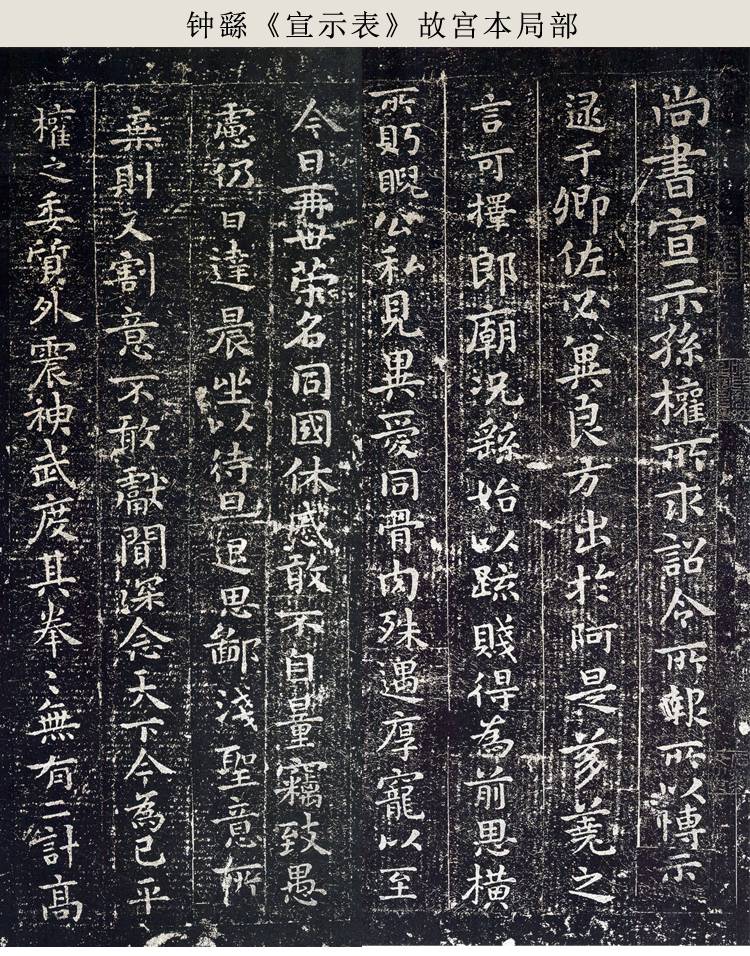 钟繇《宣示表》故宫本局部
尚書宣示孫權所求詔令所報所以博示
逮于卿佐必冀良方出於阿是芻蕘之
言可擇郎廟況繇始以疏賤得為前恩橫
所眄睨公私見異愛同骨肉殊遇厚寵以至
今日再世荣名同國休慼敢不自量竊致愚
慮仍日達晨坐以待旦退思鄙淺聖意所
棄則又割意不敢獻聞深念天下今為已平
權之委質外震神武度其拳〻無有二計高